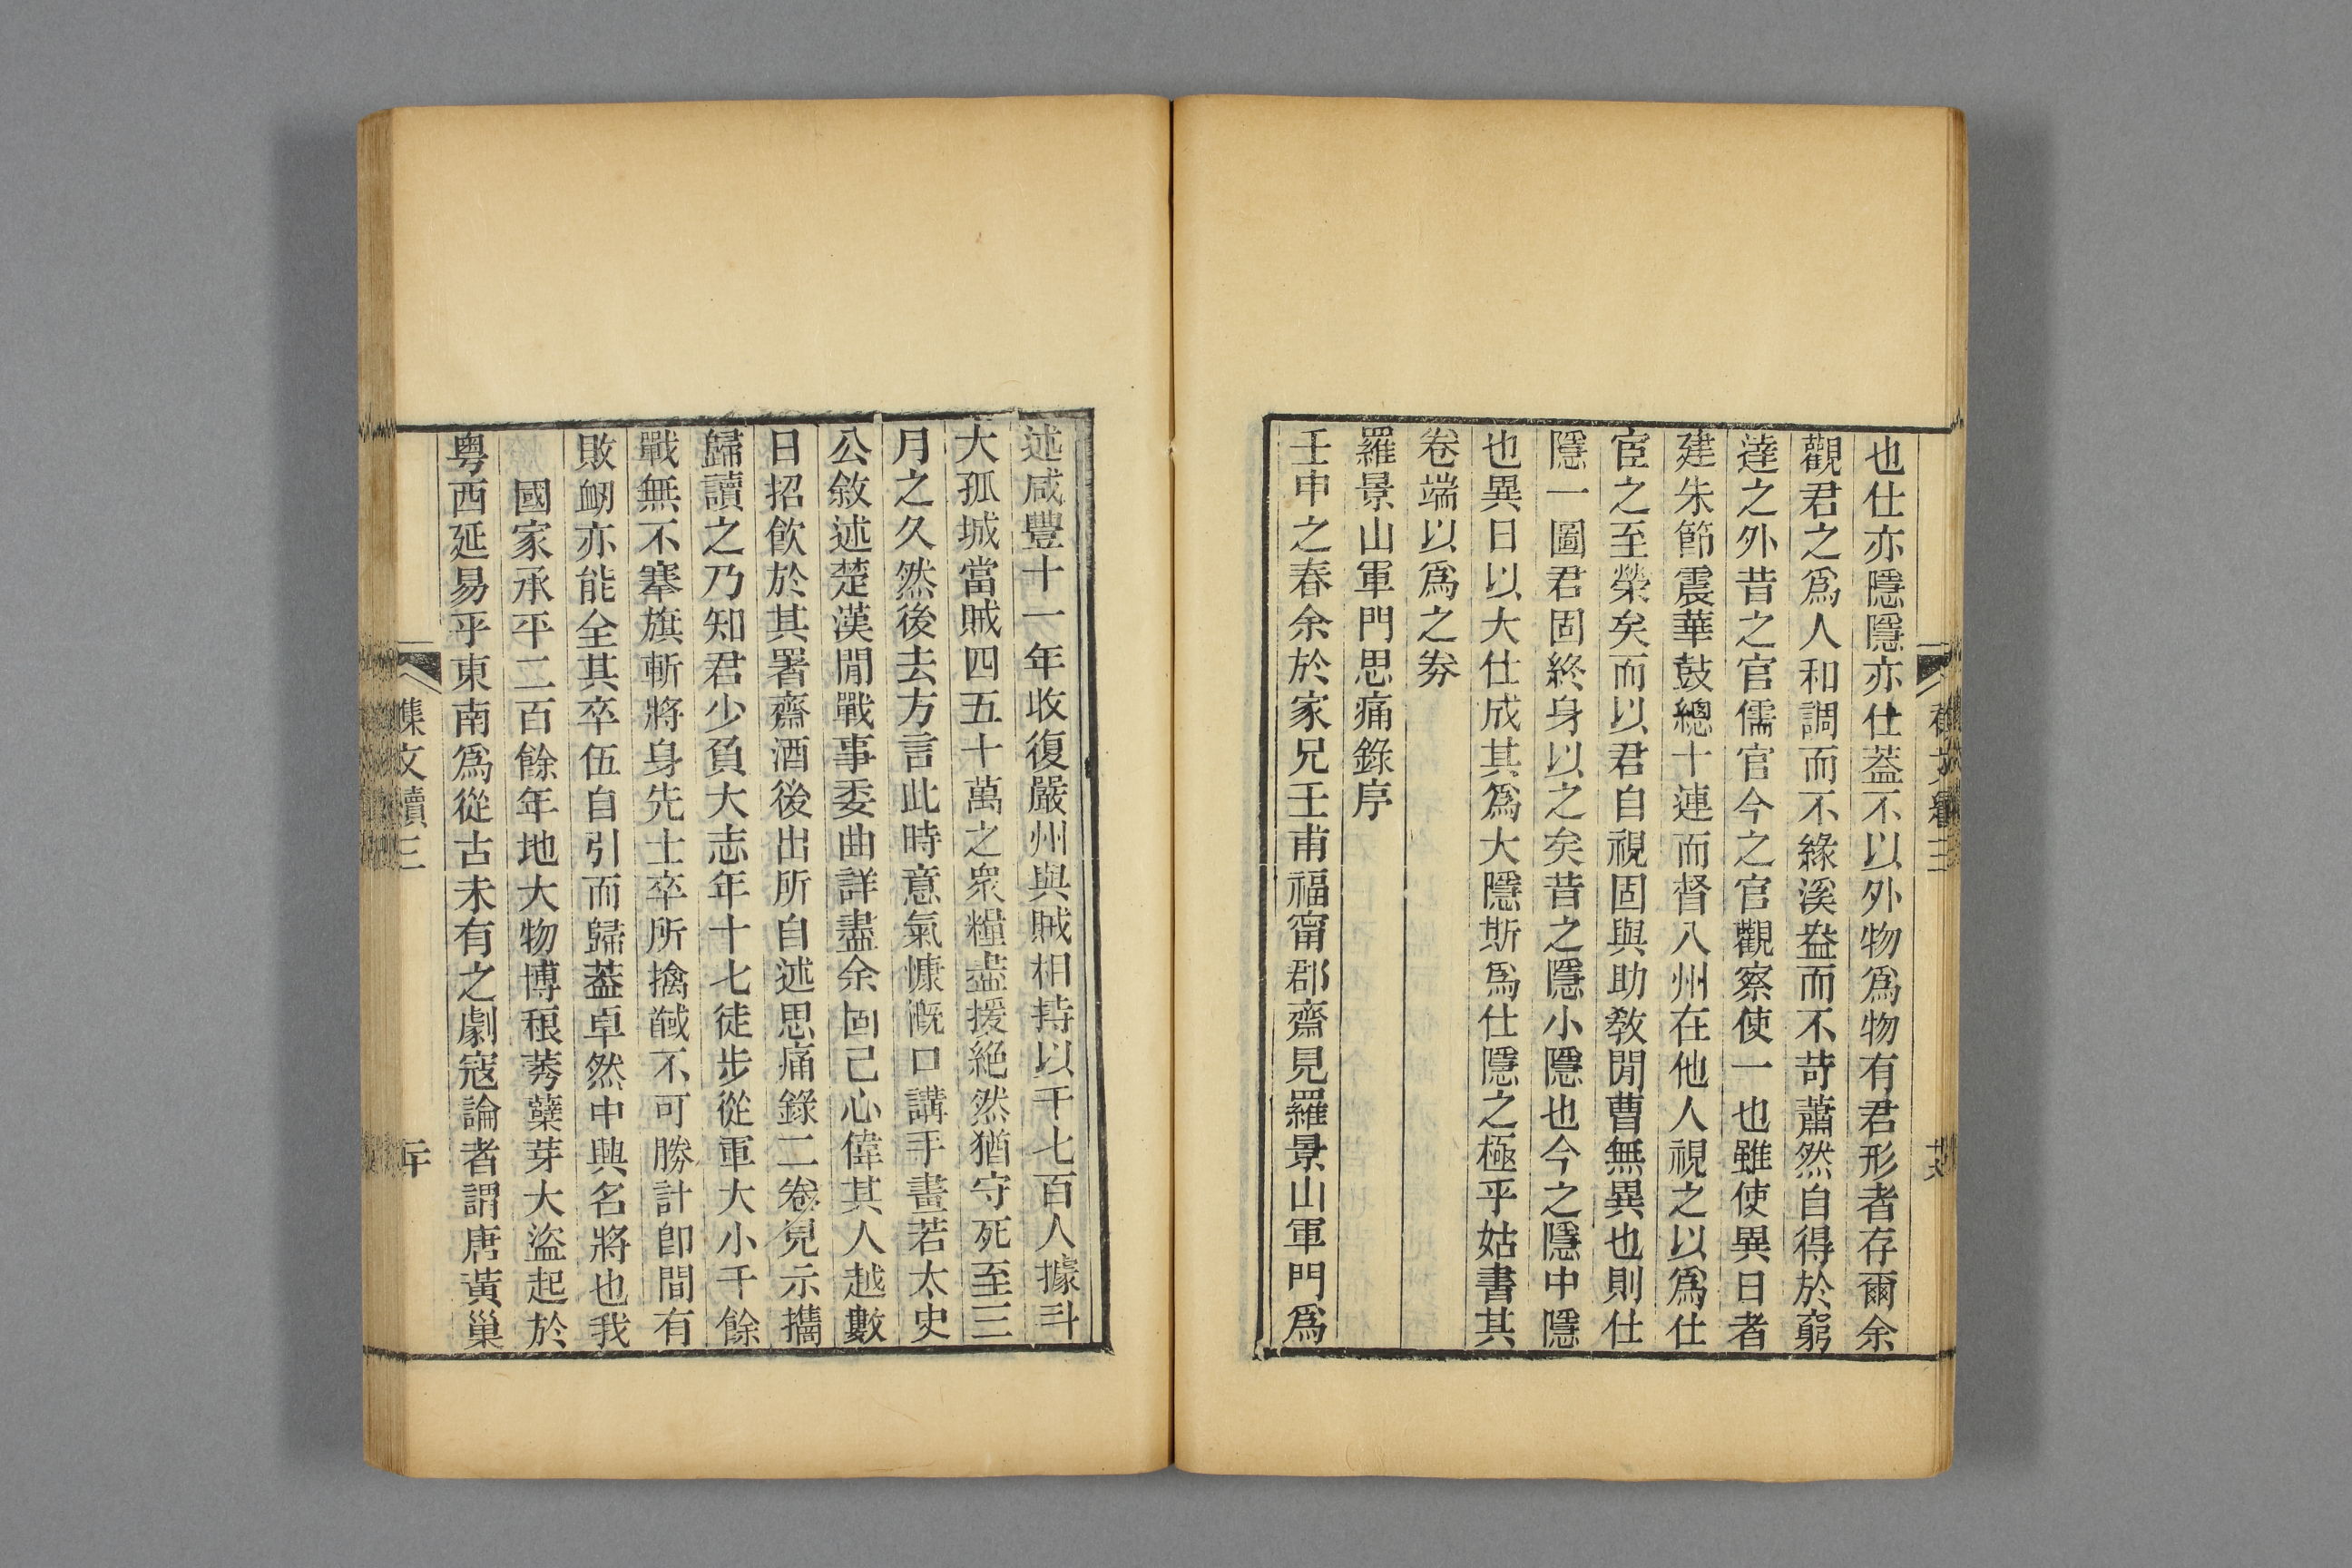 也仕亦隱隱亦仕葢不以外物爲物有君形者存爾余
觀君之爲人和調而不緣溪盎而不苛蕭然自得於窮
達之外昔之官儒官今之官觀察使一也雖使異日者
建朱節震華鼓總十連而督八州在他人視之以爲仕
宦之至榮矣而以君自視固與助敎閒曹無異也則仕
隱一圖君固終身以之矣昔之隱小隱也今之隱中隱
也異日以大仕成其爲大隱斯爲仕隱之極乎姑書其
卷端以爲之券
羅景山軍門思痛錄序
壬申之春余於家兄壬甫福甯郡齋見羅景山軍門爲
述咸豐十一年收復嚴州與賊相持以千七百人據斗
大孤城當賊四五十萬之衆糧盡援絕然猶守死至三
月之久然後去方言此時意氣慷慨口講手畫若太史
公敘述楚漢閒戰事委曲詳盡余固已心偉其人越數
日招飲於其署齋酒後出所自述思痛錄二卷見示攜
歸讀之乃知君少負大志年十七徒步從軍大小千餘
戰無不搴旗斬將身先士卒所擒馘不可勝計卽間有
敗衂亦能全其卒伍自引而歸葢卓然中興名將也我
國家承平二百餘年地大物博稂莠蘖芽大盜起於
粵西延易乎東南爲從古未有之劇寇論者謂唐黃巢
集文續三